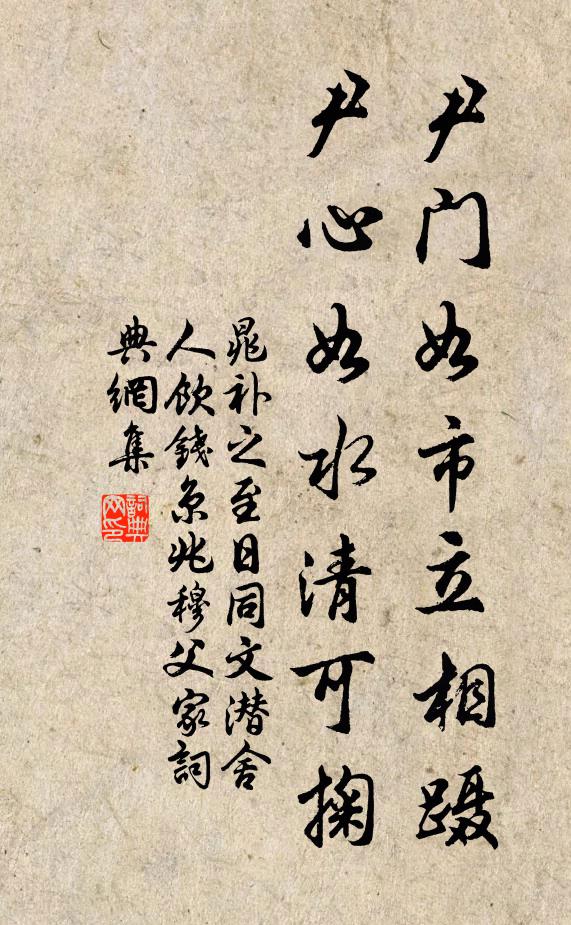 尹门如市立相蹑
尹心如水清可掬
晁补之至日同文潜舍
人饮錢京兆穆父家詞
典網集
詞典
网印